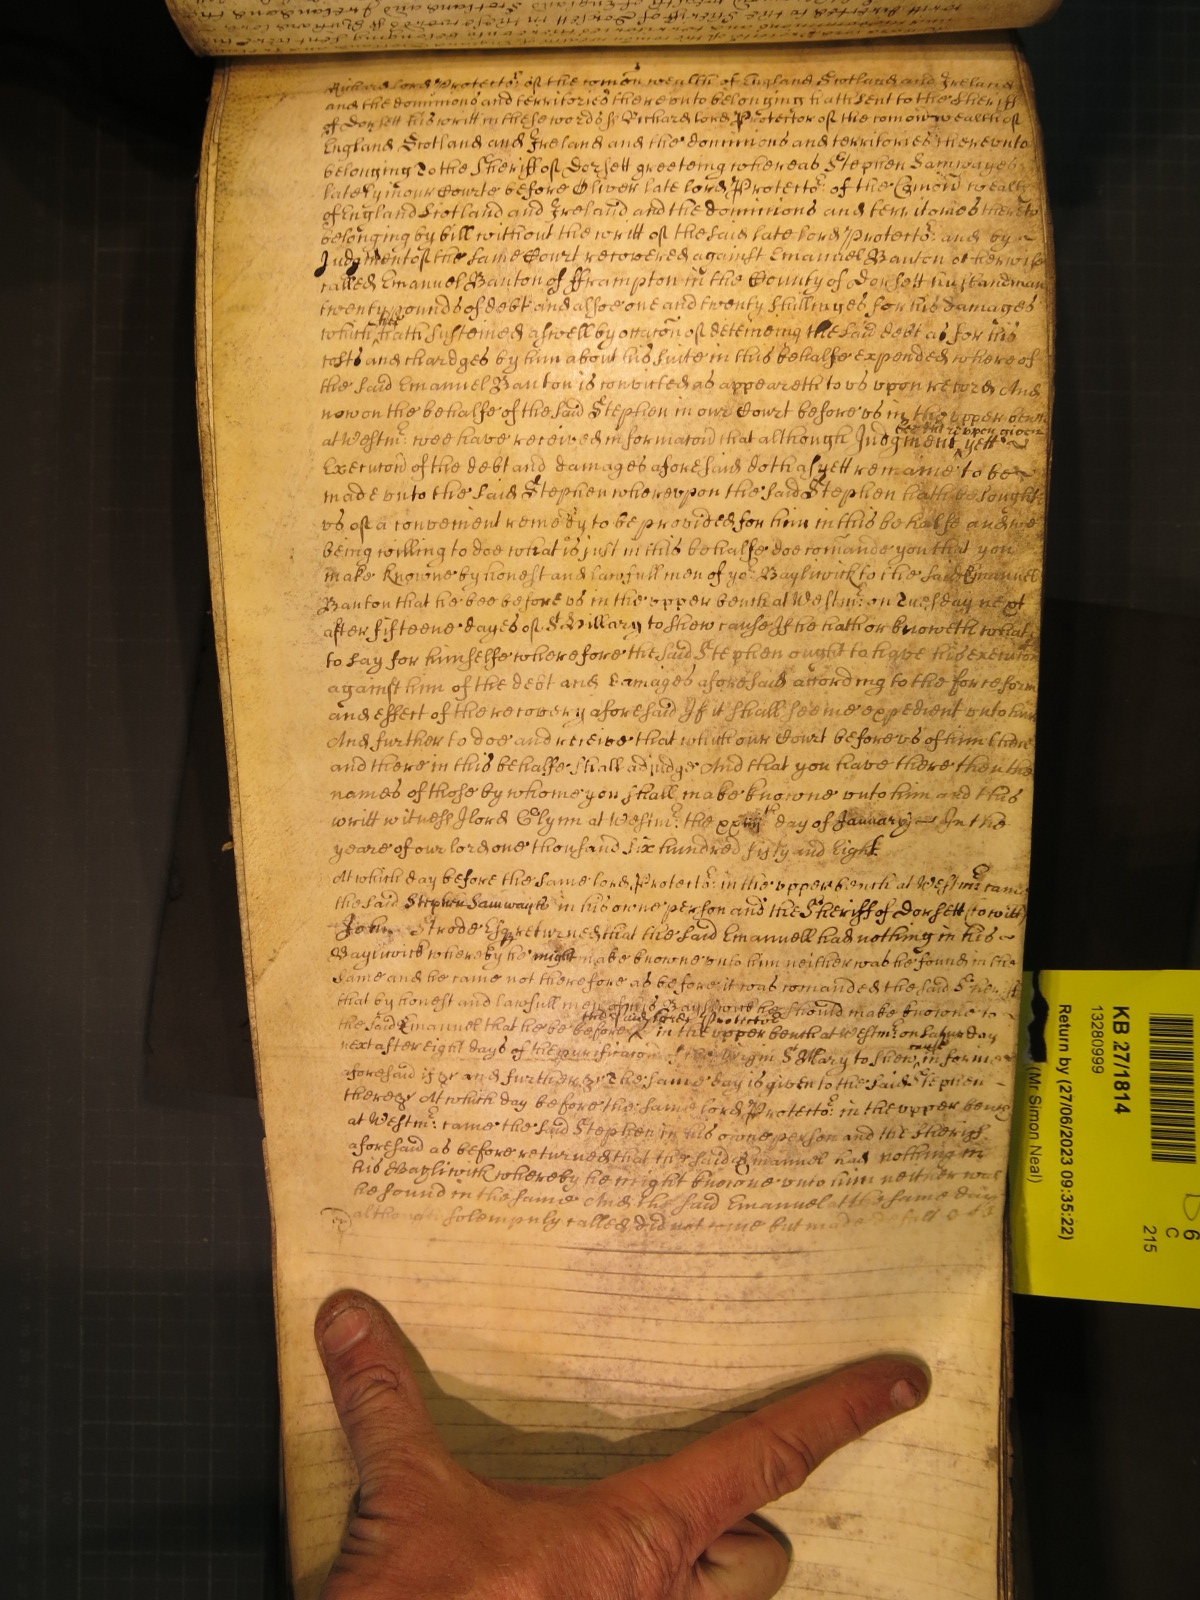 Richard lord Protector of the comon wealth of England Scotland and Ireland
and the dominions and territories thereunto belonging hath sent to the Sheriff
of Dorsett his writt in these words ss Richard lord Protector of the comonwealth of
England Scotland and Ireland and the dominions and territories thereunto
belonging To the Sheriff of Dorsett greeteing whereas Stephen Samwayes
lately in our Courte before Oliver late lord Protector of the Comon wealth
of England Scotland and Ireland and the dominions and territories thereto
belonging by bill without the writt of the said late lord Protector and by
Judgment of the same Court recovered against Emanuel Banton otherwise
called Emanuel Banton of fframpton in the County of Dorsett husbandman
twenty pounds of debt and alsoe one and twenty shillinges for his damages
which hee hath susteined aswell by occacon of deteineing the said debt as for his
costs and chardges by him about his suite in this behalfe expended whereof
the said Emanuel Banton is convicted as appeareth to us upon record And
now on the behalfe of the said Stephen in our Court before us in the upper bench
at Westmr. wee have received informacon that although Judgment bee thereupon given yett
Execucon of the debt and damages aforesaid doth as yett remaine to be
made unto the said Stephen whereupon the said Stephen hath besought
us of a convenient remedy to be provided for him in this behalfe and wee
being willing to doe what is just in this behalfe doe comande you that you
make knowne by honest and lawfull men of yor. Bayliwick to the said Emanuel
Banton that he bee before us in the upper bench at Westmr. on Tuesday next
after fifteene dayes of St. Hillary to shew cause If he hath or knoweth what
to say for himselfe wherefore the said Stephen ought to have his execucon
against him of the debt and damages aforesaid according to the force forme
and effect of the recovery aforesaid If it shall seeme expedient unto him
And further to doe and receive that which our Court before us of him then
and there in this behalfe shall adjudge And that you have there then the
names of those by whome you shall make knowne unto him and this
writt witnes J lord Glynn at Westmr. the day of January In the
yeare of our lord one thousand six hundred fifty and Eight
At which day before the same lord Protector. in the upper bench at Westmr. came
the said Stephen Samwayes in his owne person and the Sheriff of Dorsett (to witt)
John Strode Esqr returned that the said Emanuell had nothing in his
Bayliwick whereby he might make knowne unto him neither was he found in the
same and he came not therefore as before it was comanded the said Sheriff
that by honest and lawfull men of his Bayliwick hee should make knowne to
the said Emanuel that he be before the said lord Protector in the upper bench at Westmr. on Saturday
next after eight days of the purificacon of the virgin St Mary to shew cause in forme
aforesaid if &c and further &c The same day is given to the said Stephen
there &c At which day before the same lord Protector. in the upper bench
at Westmr. came the said Stephen in his owne person and the Sheriff
aforesaid as before returned that the said Emanuel had nothing in
his Bayliwick whereby he might knowne unto him neither was
he found in the same And the said Emanuel at the same day
although solempnly called did not come but made default
KB 27/1814
13280999
Return by (27/06/2023 09:35:22)
(Mr Simon Neal)
215
C
6